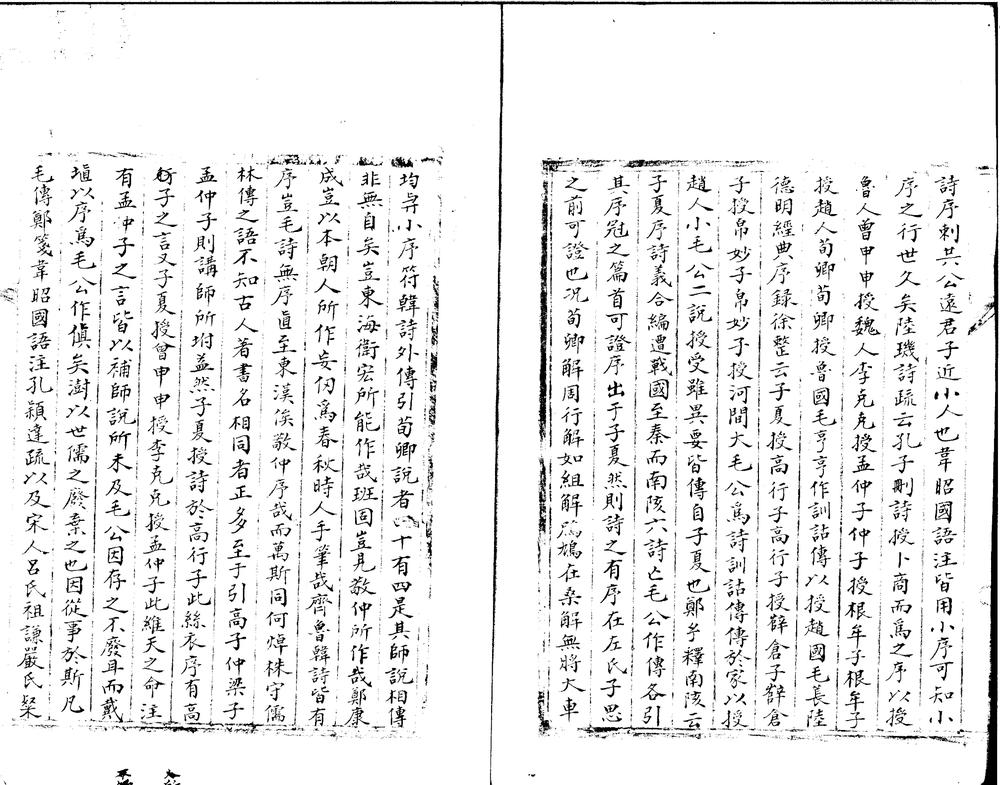 詩序刺共公遠君子近小人也韋昭國語注皆用小序可知小
序之行世久矣陸璣詩疏云孔子刪詩授卜商而爲之序以授
魯人曾申申授魏人李克克授孟仲子仲子授根牟子根牟子
授趙人荀卿荀卿授魯國毛亨亨作訓詁傳以授趙國毛萇陸
德明經典序録徐整云子夏授高行子高行子授薛倉子薛倉
子授帛妙子帛妙子授河間大毛公爲詩訓詁傳傳於家以授
趙人小毛公二說授受雖異要皆傳自子夏也鄭㝎釋南陔云
子夏序詩義合編遭戰國至秦而南陔六詩亡毛公作傳各引
其序冠之篇首可證序出于子夏然則詩之有序在左氏子思
之前可證也况荀卿解周行解如組解鳲鳩在桑解無將大車
均與小序符韓詩外傳引荀卿說者四十有四是其師說相傳
非無自矣豈東海衛宏所能作哉班固豈見敬仲所作哉鄭康
成豈以本朝人所作妄仞爲春秋時人手筆哉齊魯韓詩皆有
序豈毛詩無序直至東漢俟敬仲序哉而萬斯同何焯株守儒
林傳之語不知古人著書名相同者正多至于引高子仲梁子
孟仲子則講師所坿益然子夏授詩於高行子此絲衣序有高
子之言又子夏授曾申申授李克克授孟仲子此維天之命注
有孟仲子之言皆以補師說所未及毛公因存之不廢耳而戴
埴以序爲毛公作傎矣澍以世儒之廢棄之也因從事於斯凡
毛傳鄭箋韋昭國語注孔穎達疏以及宋人呂氏祖謙嚴氏粲